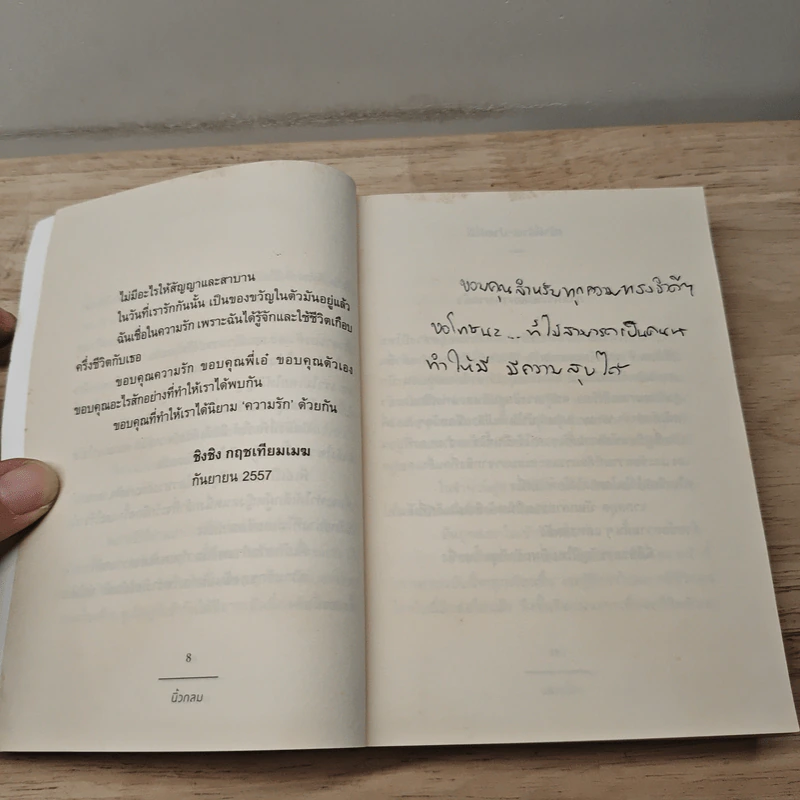 ไม่มีอะไรให้สัญญาและสาบาน
ในวันที่เรารักกันนั้น เป็นของขวัญในตัวมันอยู่แล้ว
ฉันเชื่อในความรัก เพราะฉันได้รู้จักและใช้ชีวิตเกือบ
ครึ่งชีวิตกับเธอ
ขอบคุณความรัก ขอบคุณพี่เอ๋ ขอบคุณตัวเอง
ขอบคุณอะไรสักอย่างที่ทำให้เราได้พบกัน
ขอบคุณที่ทำให้เราได้นิยาม ‘ความรัก’ ด้วยกัน
ชิงชิง กฤชเทียมเมฆ
กันยายน 2557
8
นิ้วกลม
ขอบคุณสำหรับทุกความทรงจำดีๆ
ขอโทษนะ... ที่ไม่สามารถเป็นคนที่
ทำให้มี มีความสุขได้